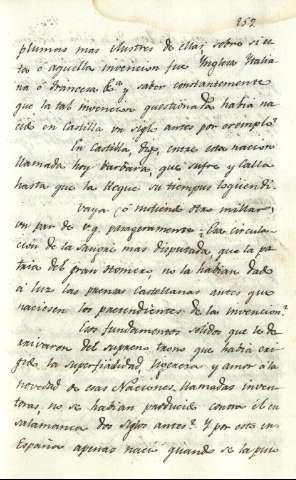 157
plumas mas ilustres de ellas, sobre si es
ta ó aquella invencion fue Inglesa Italia
na ó Francesa &.ª y saber constantemente
que la tal invencion questionada habia na
cido en Castilla un siglo antes por exemplo?
En Castilla, digo, entre esta nacion
llamada hoy barbara, que sufre y calla
hasta que la llegue su tiempus loquendi.
Vaya (ó mediné otro millar,
un par de v.g. pasageramente: La circula-
cion de la sangre mas disputada que la pa-
tria del gran Homero, no la habian dado
á luz las prensas Castellanas antes que
naciesen los pretendientes de la invencion?
Los fundamentos solidos que le de
rivaron del supremo trono que habia exi
gido la superficialidad, ligereza y amor á la
novedad de esas Naciones llamadas inven
toras, no se habian producido contra él en
Salamanca dos siglos antes? Y por esto en
España apenas nació quando se la puso